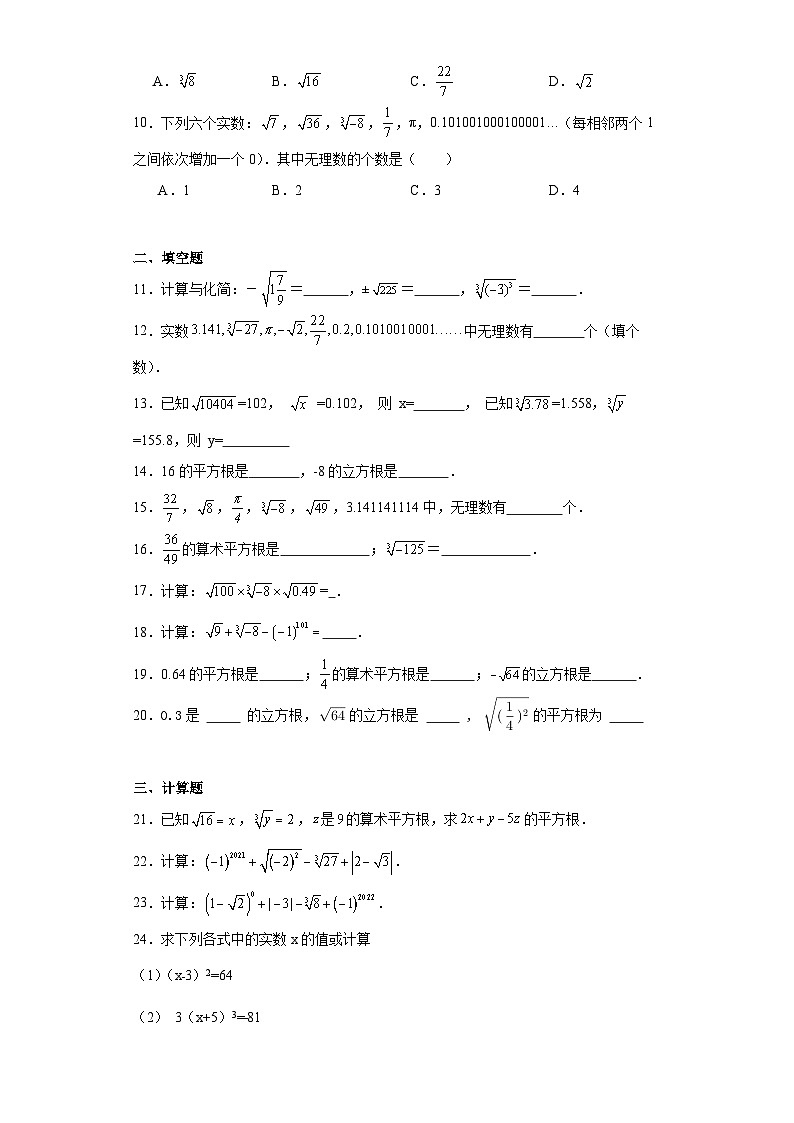 A．∛8 B．√16 C．22/7 D．√2
10．下列六个实数：√7，√36，∛−8，1/7，π，0.101001000100001…（每相邻两个 1
之间依次增加一个 0)．其中无理数的个数是（ ）
A．1 B．2 C．3 D．4
二、填空题
11．计算与化简：－√(1 7/9)＝______，±√225＝______，∛(−3)³＝______．
12．实数3.141,∛−27,π,−√2,22/7,0.2,0.1010010001……中无理数有_______个（填个
数)．
13．已知√10404=102， √x =0.102， 则 x=_______， 已知∛3.78=1.558，∛y
=155.8，则 y=_________
14．16 的平方根是_______，-8 的立方根是_______．
15．32/7，√8，π/4，∛−8，√49，3.141141114 中，无理数有________个．
16．36/49的算术平方根是____________；∛−125＝____________．
17．计算：√100×∛−8×√0.49=_．
18．计算：√9+∛−8−(−1)¹⁰¹=_____．
19．0.64 的平方根是______；1/4的算术平方根是______；−√64的立方根是______．
20．0.3 是 _____ 的立方根，√64 的立方根是 _____ ，√(1/4)² 的平方根为 _____
三、计算题
21．已知√16=x，∛y=2，z是9的算术平方根，求2x+y−5z的平方根．
22．计算：(−1)²⁰²¹+√(−2)²−∛27+|2−√3|．
23．计算：(1−√2)⁰+|−3|−∛8+(−1)²⁰²²．
24．求下列各式中的实数 x 的值或计算
（1）（x-3）²=64
（2） 3（x+5）³=-81